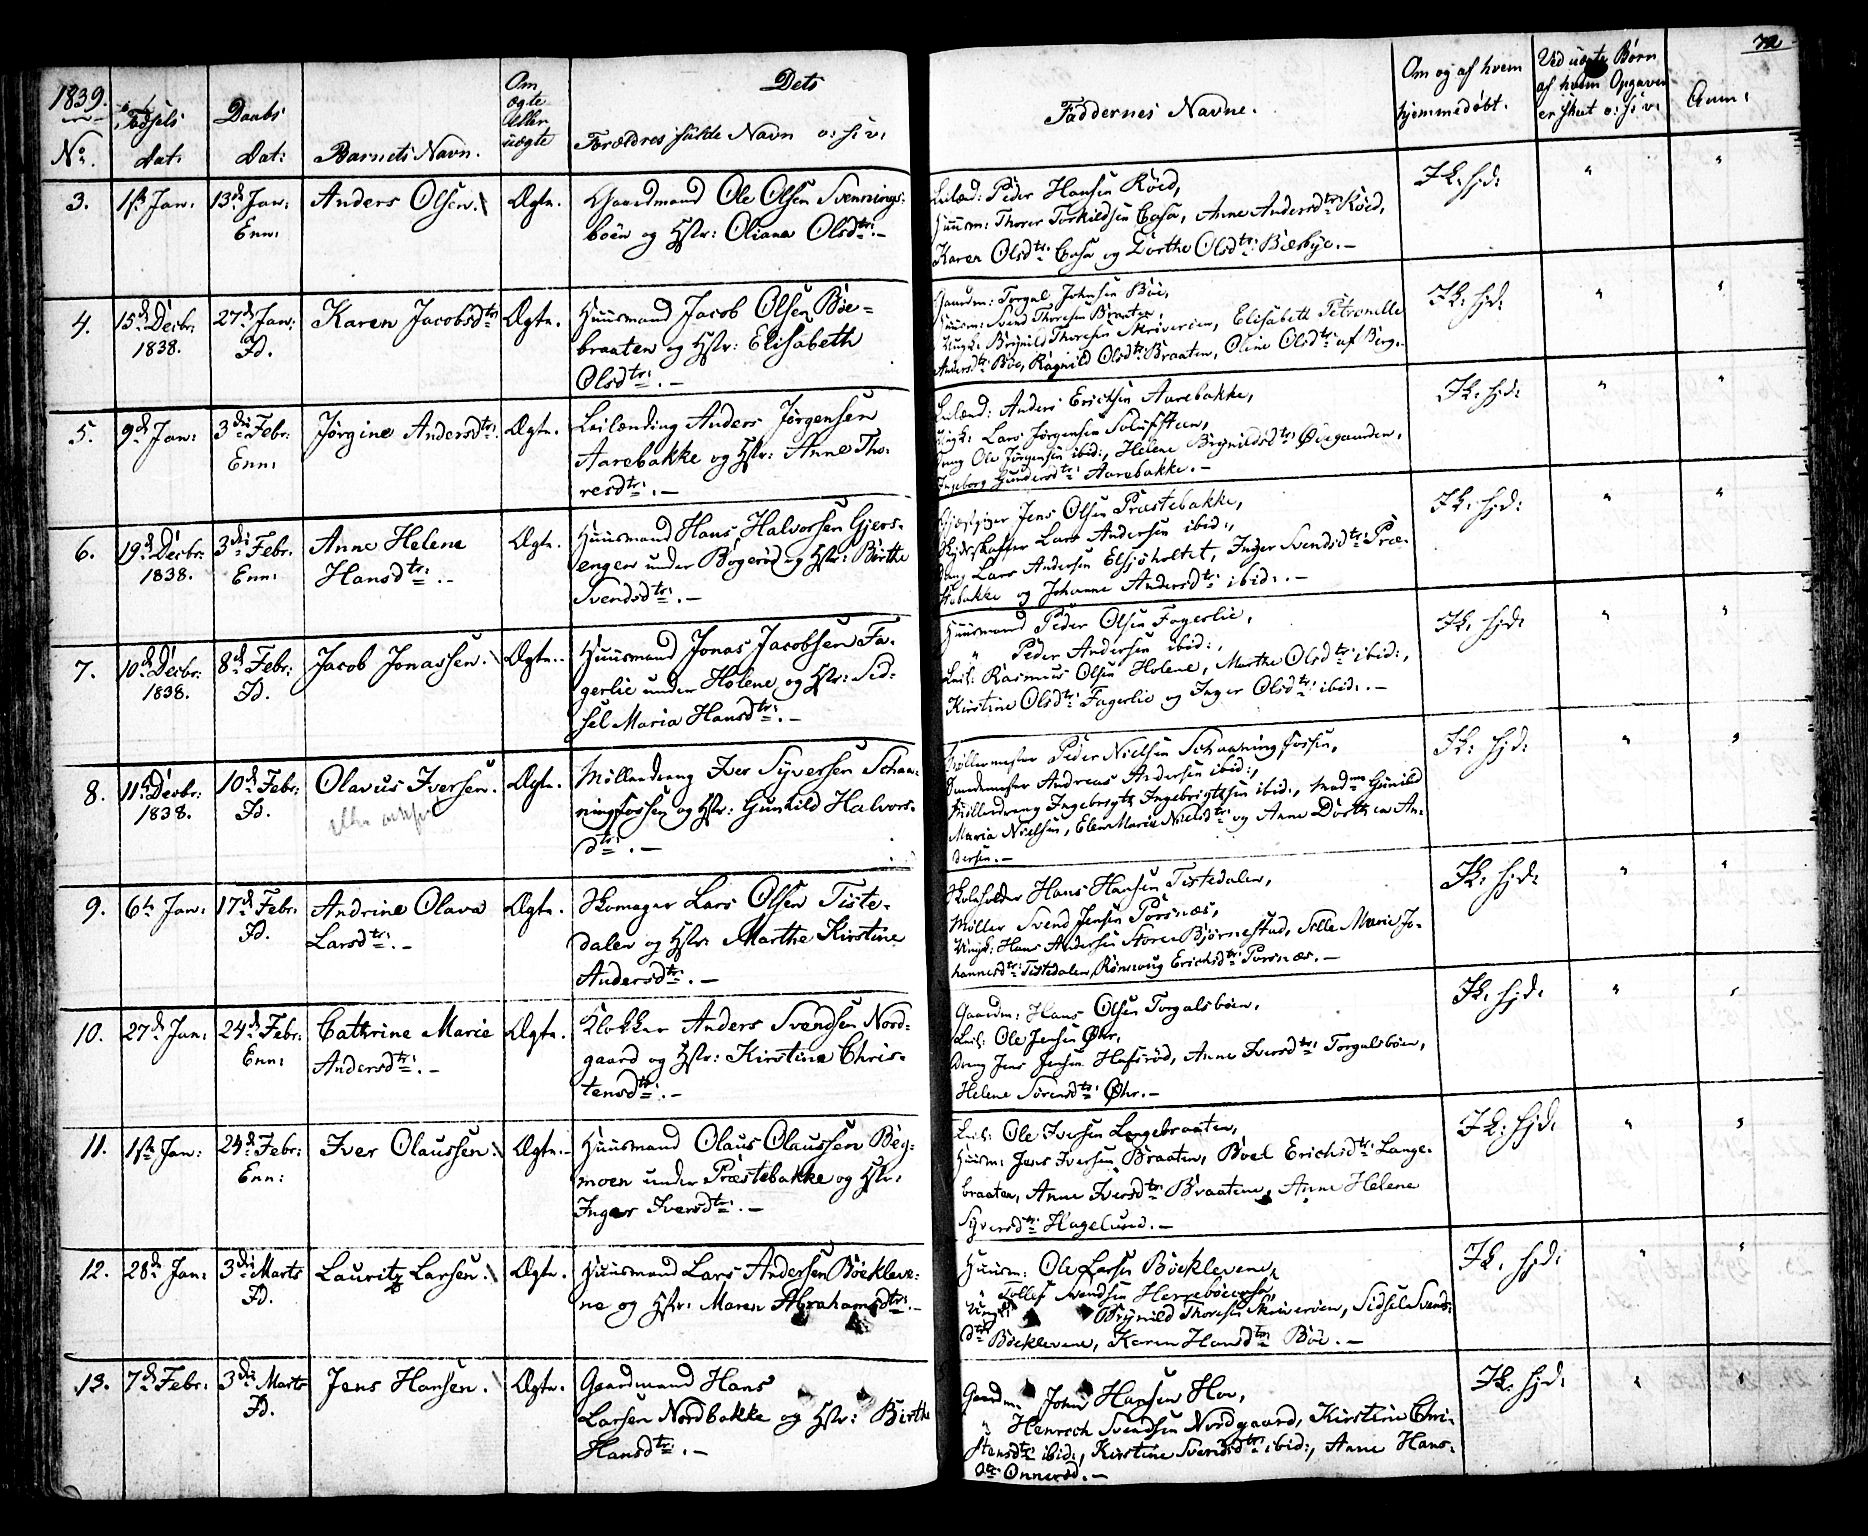 1839.
No.
Fødsels
dat:
Daabs
dat:
Barnets Navn.
Om
ægte
eller
uægte
Dets
Forældres fulde Navn o: s: v:
Faddernes Navne.
Om og af hvem
hjemmedøbt.
Ved uægte Børn
af hvem Opgaven
er skeet o: s: v:
Anm:
72
3.
1ste Jan:
13de Jan:
Enn:
Anders Olsen.
Ægte.
Gaardmand Ole Olsen Svennings-
boen og Hstr: Oliana Olsdtr: -
Leilænd: Peder Hansen Röed,
Huusm: Thorer Torkildsen Casa, Anne Andersdtr: Röed,
Karen Olsdtr: Casa og Dorthe Olsdtr: Bieshye. -
Ik: hj: d:
4.
15de Decbr:
1838.
27de Jan:
Id.
Karen Jacobsdtr:
Ægte.
Huusmand Jacob Olsen Böe-
braaten og Hstr: Elisabeth
Olsdtr: . -
Gaardm: Torgal Johnsen Böe,
Huusm: Svend Thoresen Braaten,
Ungk: Brynild Thoresen Skriverøen, Elisabeth Petronelle
Andersdtr: Böe, Ragnild Olsdtr: Braaten, Oline Olsdtr: af Berg. -
Ik: hj: d:
5.
9de Jan:
3die Febr:
Enn:
Jørgine Andersdtr:
Ægte.
Leilænding Anders Jørgensen
Aarebakke og Hstr: Anne Tho-
resdtr: . -
Leilænd: Anders Ericksen Aarebakke,
Ungk: Lars Jørgensen
Dreng Ole Jörgensen ibid:, Helene Brynildsdtr: Øiegaarden,
Ingeborg Gundersdtr: Aarebakke. -
Ik: hj: d:
6.
19de Decbr:
1838.
3die Febr:
Enn:
Anne Helene
Hansdtr: . -
Ægte.
Huusmand Hans Halvorsen Gjers-
engen under Bøgerød og Hstr: Birthe
Svendsdtr: . -
Jens Olsen Præstebakke,
Skydsskaffer Lars Andersen ibid:,
Dreng Lars Andersen Elssjöholtet, Inger Svendsdtr: Præ-
stebakke og Johanne Andersdtr: ibid: . -
Ik: hj: d:
7.
10de Decbr:
1838.
8de Febr:
Id.
Jacob Jonassen.
Ægte.
Huusmand Jonas Jacobsen Fa-
gerlie under Holene og Hstr: Sid-
sel Maria Hansdtr: . -
Huusmand Peder Olsen Fagerlie,
" Peder Andersen ibid:,
Leil: Rasmus Olsen Holene, Marthe Olsdtr: ibid:,
Kirstine Olsdtr: Fagerlie og Inger Olsdtr: ibid: . -
Ik: hj: d:
8.
11te Decbr:
1838.
10de Febr:
Id.
Olavus Iversen.
Ægte.
Mölledreng Iver Syversen Schan-
ningfossen og Hstr: Gunhild Halvors-
dtr: . -
Möllermester Peder Nielsen Schanningfossen,
Andreas Andersen ibid:,
Mölledreng Ingebrigt Ingebrigtsen ibid:, Madme Gunild
Maria Nielsen, Elen Marie Nielsdtr: og Anne Dorthea An-
dersen. -
Ik: hj: d:
9.
6te Jan:
17de Febr:
Id.
Andrine Olava
Larsdtr: . -
Ægte.
Skomager Lars Olsen Tiste-
dalen og Hstr: Marthe Kirstine
Andersdtr: . -
Skoleholder Hans Hansen Tistedalen,
Möller Svend Jensen Porsnæs,
Ungk: Hans Andersen Store Bjørnestad, Sille Marie Jo-
hannesdtr: Tistedalen, Rönnoug Erichsdtr: Porsnæs. -
Ik: hj: d:
10.
27de Jan:
24de Febr:
Enn:
Cathrine Marie
Andersdtr: . -
Ægte.
Klokker Anders Svendsen Nord-
gaard og Hstr: Kirstine Chris-
tensdtr: . -
Gaardm: Hans Olsen Torgalsböen,
Leil: Ole Jensen Øhr,
Dreng Jens Jensen Hafsröd, Anne Iversdtr: Torgalsböen,
Helene Sörensdtr: Øhr. -
Ik: hj: d:
11.
1ste Jan:
24de Febr:
Enn:
Iver Olaussen.
Ægte.
Huusmand Olaus Olaussen Beg-
moen under Præstebakke og Hstr:
Inger Iversdtr: . -
Leil: Ole Iversen Langebraaten,
Huusm: Jens Iversen Braaten, Boel Erichsdtr: Lange-
braaten, Anne Iversdtr: Braatene, Anne Helene
Syversdtr: Hagelund. -
Ik: hj: d:
12.
28de Jan:
3die Marts
Id.
Lauritz Larsen.
Ægte.
Huusmand Lars Andersen Böekleve-
ne og Hstr: Maren Abrahamsdtr: . -
Huusm: Ole Larsen Böeklevene,
" Tollef Svendsen
Ungk: Brynild Thoresen Skriverøen, Sidsel Svends-
dtr: Böeklevene, Karen Hansdtr: Böe. -
Ik. hj: d:
13.
7de Febr:
3die Marts
Id.
Jens Hansen.
Ægte.
Gaardmand Hans
Larsen Nordbakke og Hstr: Birthe
Hansdtr: . -
Gaardm: John Hansen Hov,
" Henrich Svendsen Nordgaard, Kirstine Chri-
stensdtr: ibid:, Kirstine Svendsdtr: ibid:, Anne Hans-
dtr: Onnersd. -
Ik. hj: d: